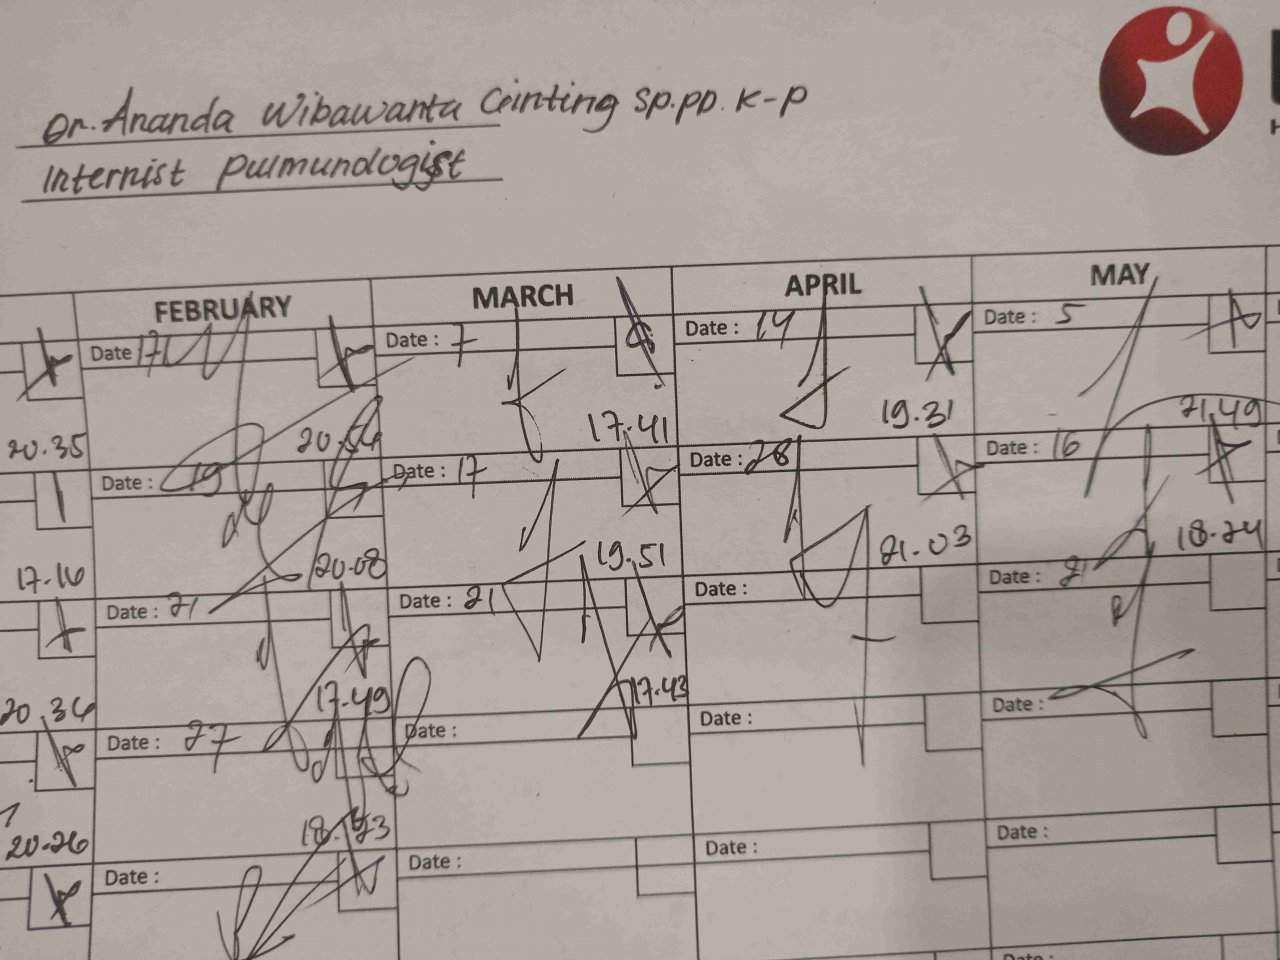 Dr. Ananda Wibawanta Ginting Sp.PD. K-P
Internist Pulmundologist
FEBRUARY MARCH APRIL MAY
Date 17 Date : 7 Date : 14 Date : 5
20.35 20.54 17.41 19.31 21.49
Date : 19 Date : 17 Date : 28 Date : 16
17.16 20.08 19.51 21.03 18.24
Date : 21 Date : 21 Date : Date : 21
20.34 17.49 17.43
Date : 27 Date : Date : Date :
20.26 18.53
Date : Date : Date : Date :